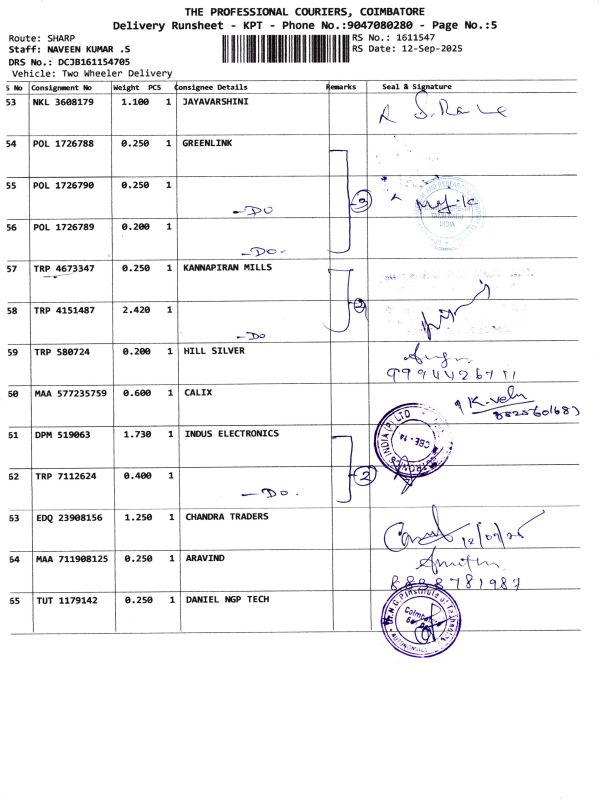 THE PROFESSIONAL COURIERS, COIMBATORE
Delivery Runsheet - KPT - Phone No.:9047080280 - Page No.:5
Route: SHARP RS No.: 1611547
Staff: NAVEEN KUMAR .S RS Date: 12-Sep-2025
DRS No.: DCJB161154705
Vehicle: Two Wheeler Delivery
S No Consignment No Weight PCS Consignee Details Remarks Seal & Signature
53 NKL 3608179 1.100 1 JAYAVARSHINI
54 POL 1726788 0.250 1 GREENLINK
55 POL 1726790 0.250 1
-DO
56 POL 1726789 0.200 1
-DO-
57 TRP 4673347 0.250 1 KANNAPIRAN MILLS
58 TRP 4151487 2.420 1
-DO
59 TRP 580724 0.200 1 HILL SILVER
9994426711
60 MAA 577235759 0.600 1 CALIX K.velu
61 DPM 519063 1.730 1 INDUS ELECTRONICS
CBE-14
62 TRP 7112624 0.400 1 2
-DO-
63 EDQ 23908156 1.250 1 CHANDRA TRADERS 12/09/25
64 MAA 711908125 0.250 1 ARAVIND
65 TUT 1179142 0.250 1 DANIEL NGP TECH